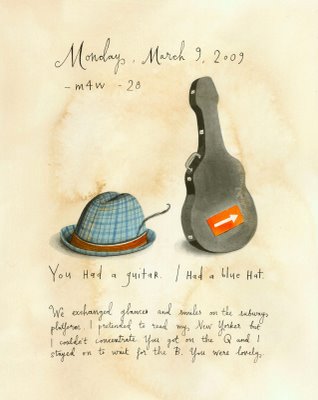 Monday, March 9, 2009
- m4w - 28
You had a guitar. I had a blue hat.
We exchanged glances and smiles on the subway
platform. I pretended to read my New Yorker but
I couldn't concentrate. You got on the Q and I
stayed on to wait for the B. You were lovely.